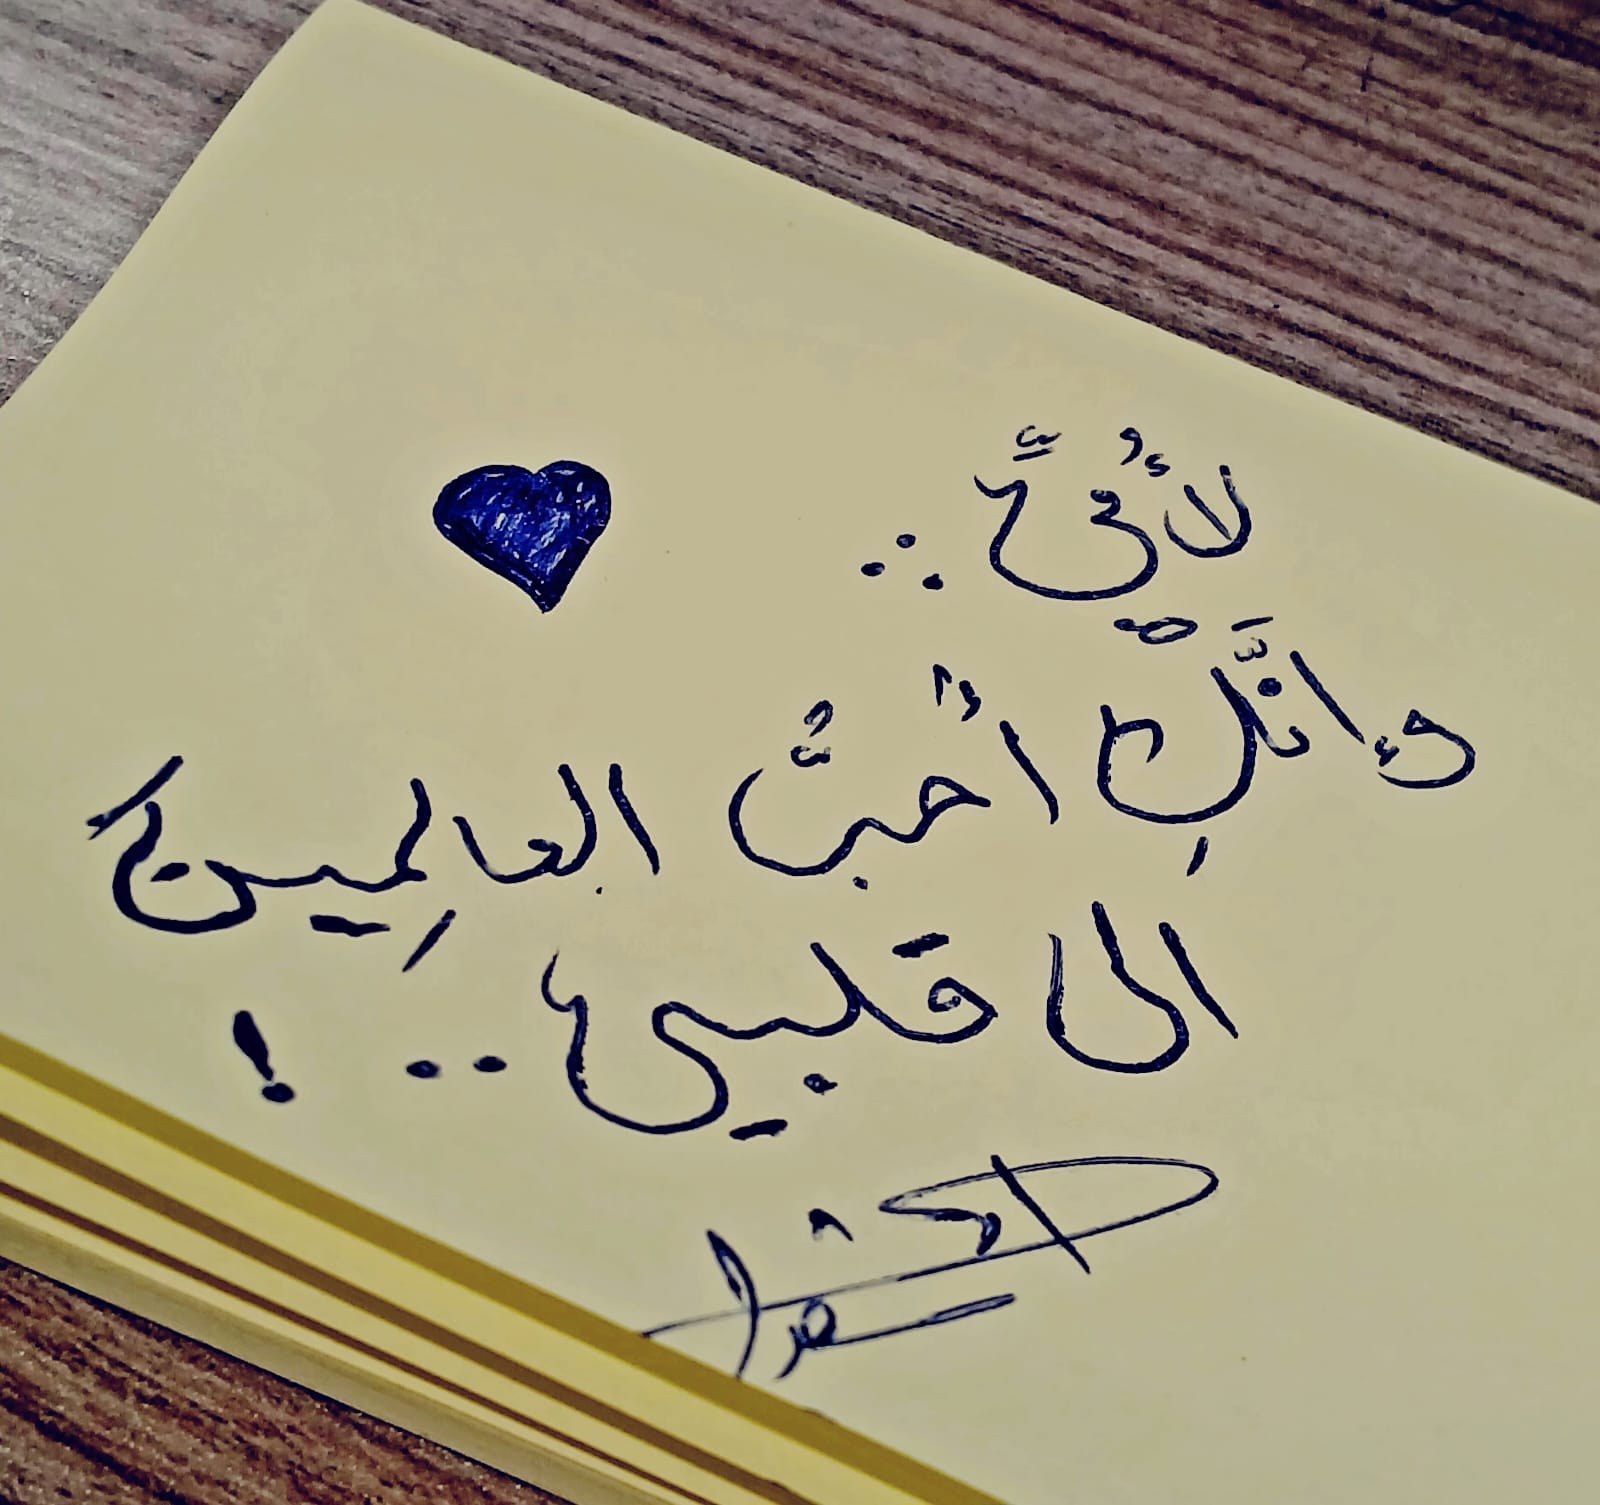 لأُمّيَ ..
وإنَّكِ أُحبُّ العالمِين
الى قَلبي .. !